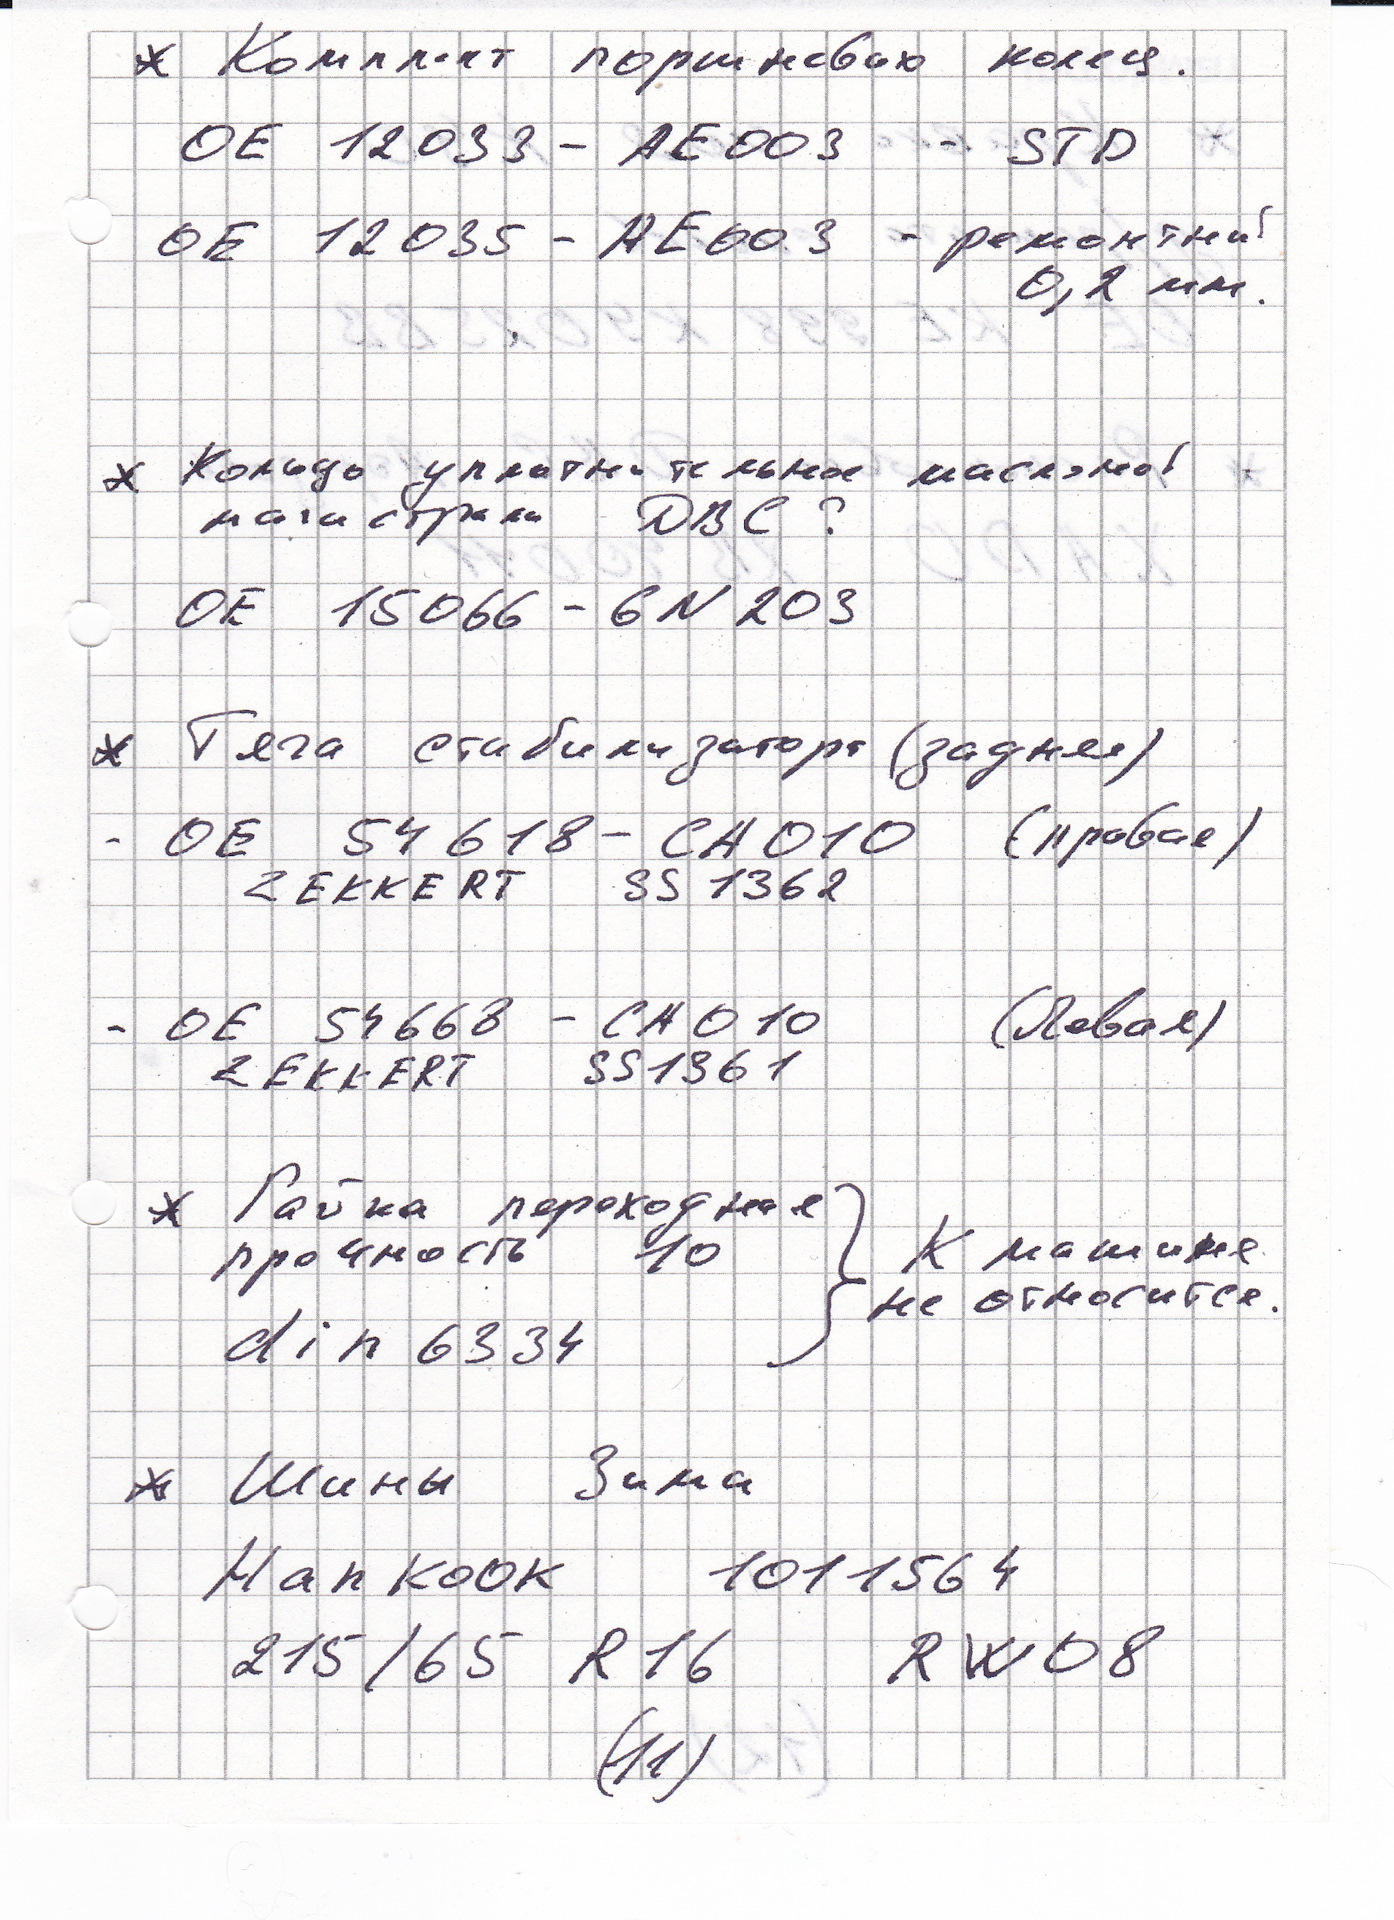 * Комплект поршневых колец.
OE 12033 - AE003 - STD
OE 12035 - AE003 - ремонтный
0,2 мм.
* Кольцо уплотнительное масляной
магистрали ДВС ?
OE 15066 - 6N203
* Тяга стабилизатора (задняя)
- OE 54618 - CA010 (правая)
ZEKKERT SS1362
- OE 54668 - CA010 (Левая)
ZEKKERT SS1361
* Гайка переходная
прочность 10
К машине
не относится.
din 6334
* Шины Зима
Hankook 1011564
215/65 R16 RW08
(11)